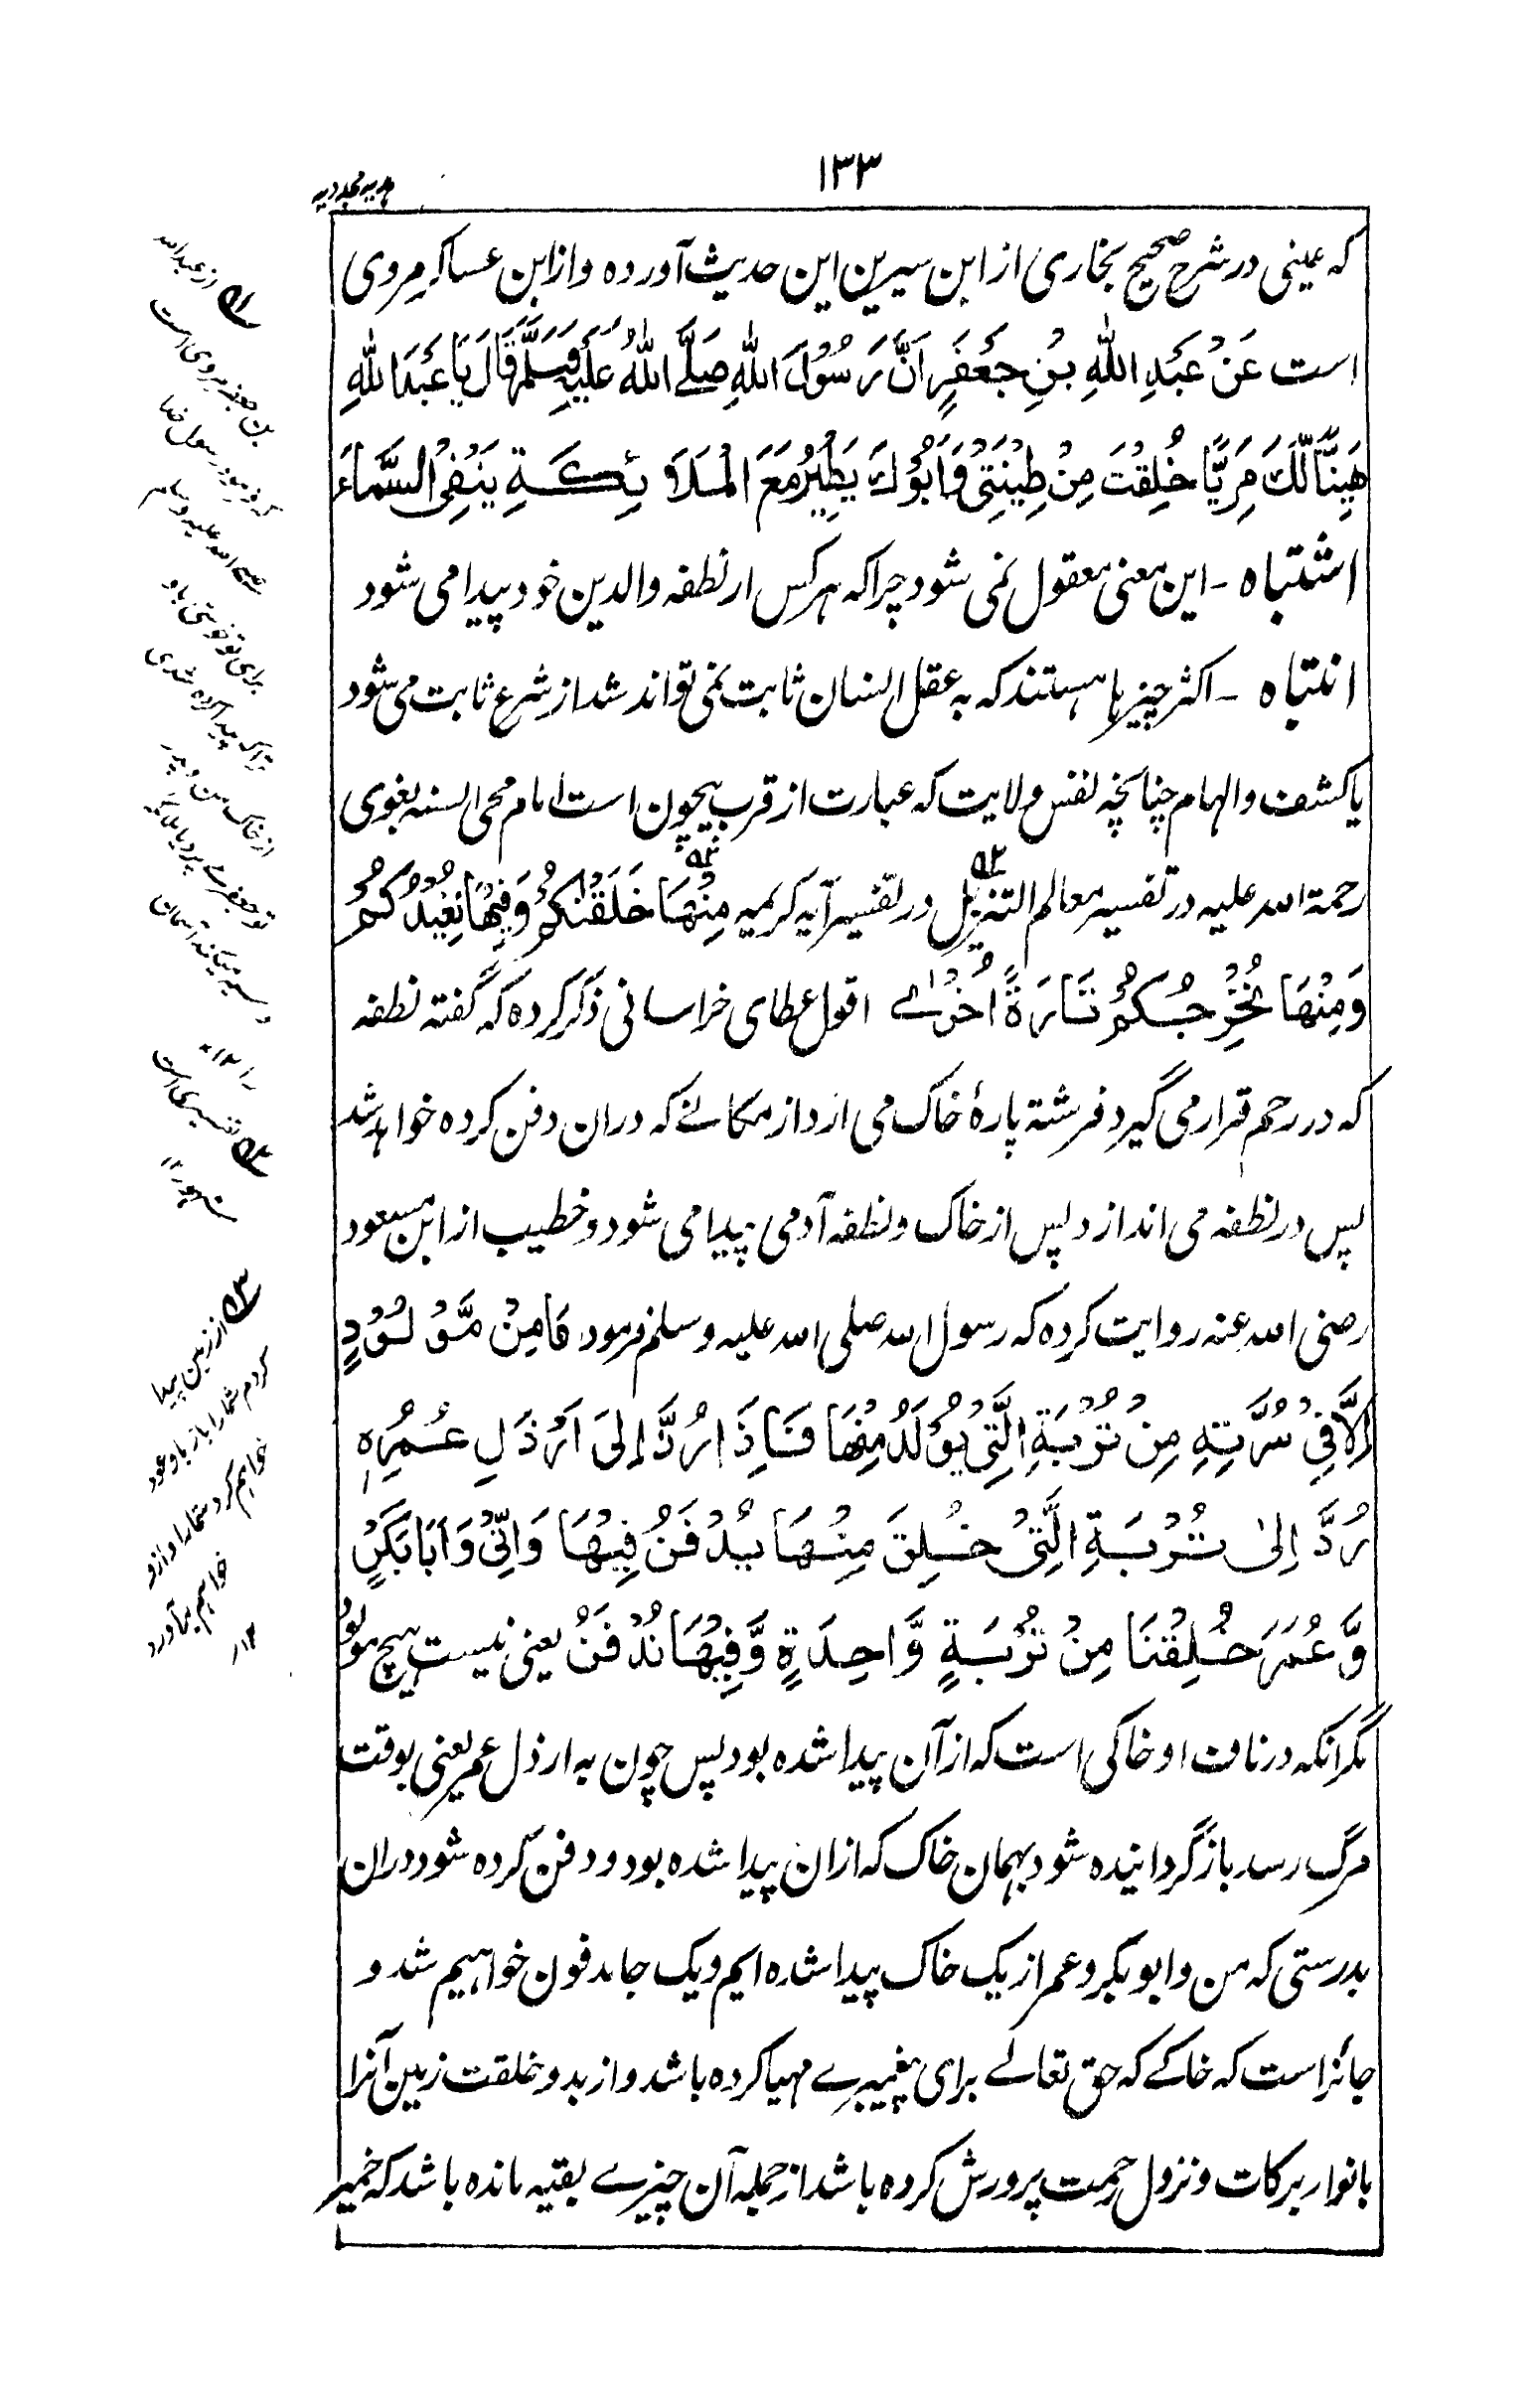 ۱۳۳
هدیه مجددیه
که عینی در شرح صحیح بخاری از ابن سیرین این حدیث آورده و از ابن عساکر مروی
است عَنْ عَبْدِ اللّٰهِ بْنِ جَعْفَرٍ اَنَّ رَسُوْلَ اللّٰهِ صَلَّے اللّٰهُ عَلَيْهِ وَسَلَّمَ قَالَ يَا عَبْدَ اللّٰهِ
هَنِيْئًا لَّكَ مَرِيًّا خُلِقْتَ مِنْ طِيْنَتِيْ وَاَبُوْكَ يَطِيْرُ مَعَ الْمَلَآئِكَةِ يَنْفِي السَّمَاءَ
اشتباه - این معنی معقول نمی شود چراکه هرکس از نطفه والدین خود پیدا می شود
انتباه - اکثر چیزها هستند که به عقل انسان ثابت نمی تواند شد از شرع ثابت می شود
یا کشف و الهام چنانچه نفس ولایت که عبارت از قرب بیچون است امام محی السنه بغوی
رحمة الله علیه در تفسیر معالم التنزیل در تفسیر آیه کریمه مِنْهَا خَلَقْنٰكُمْ وَفِيْهَا نُعِيْدُكُمْ
وَمِنْهَا نُخْرِجُكُمْ تَارَةً اُخْرٰے اقول عطای خراسانی ذکر کرده که گفته نطفه
که در رحم قرار می گیرد فرشته پارۀ خاک می ازداز مکانے که دران دفن کرده خواهد شد
پس در نطفه می اندازد پس از خاک و نطفه آدمی پیدا می شود و خطیب از ابن مسعود
رضی الله عنه روایت کرده که رسول الله صلی الله علیه وسلم فرمود مَا مِنْ مَّوْلُوْدٍ
اِلَّا فِيْ سُرَّتِهٖ مِنْ تُرْبَةِ الَّتِيْ يُوْلَدُ مِنْهَا فَاِذَا رُدَّ اِلىٰ اَرْذَلِ عُمُرِهٖ
رُدَّ اِلىٰ تُرْبَةِ الَّتِيْ خُلِقَ مِنْهَا يُدْفَنُ فِيْهَا وَاِنِّيْ وَاَبَابَكْرٍ
وَّعُمَرَ خُلِقْنَا مِنْ تُرْبَةٍ وَّاحِدَةٍ وَّفِيْهَا نُدْفَنُ یعنی نیست هیچ مولود
مگر انکه در ناف او خاکی است که از آن پیدا شده بود پس چون به ارذل عمر یعنی بوقت
مرگ رسد باز گردانیده شود بهمان خاک که ازان پیدا شده بود و دفن کرده شود دران
بدرستی که من و ابوبکر و عمر از یک خاک پیدا شده ایم و یک جا مدفون خواهیم شد و
جائز است که خاکے که حق تعالے برای پیغمبرے مهیا کرده باشد و از بدو خلقت زمین آنرا
بانوار برکات و نزول رحمت پرورش کرده باشد از جمله آن چیزے بقیه مانده باشد که خمیر
از عبدالله
بن جعفر مروی است
که فرمود رسول خدا
صلے الله علیه وسلم
از خاک من و پدر
از زمین پیدا
کردم شما را باز باو عود
خواهم کرد شما را و ازو
خواهم برآورد
۱۲